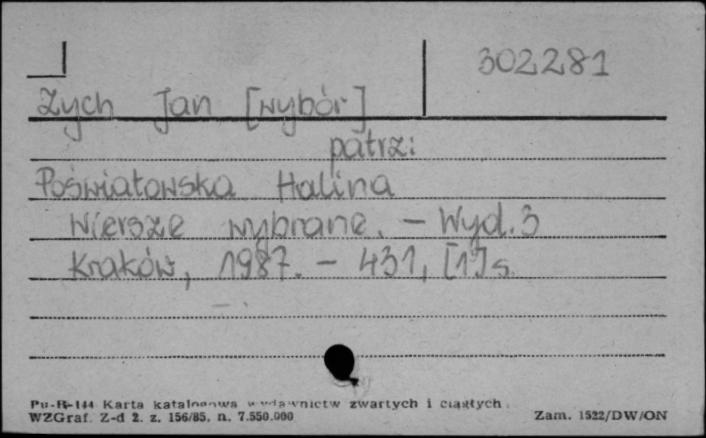 302281
Zych Jan [wybór]
patrz:
Poświatowska Halina
Wiersze wybrane. - Wyd. 3
Kraków, 1987. - 431, [1] s.
Pu-B-144 Karta katalogowa wydawnictw zwartych i ciągłych
WZGraf. Z-d 2. z. 156/85. n. 7.550.000
Zam. 1522/DW/ON